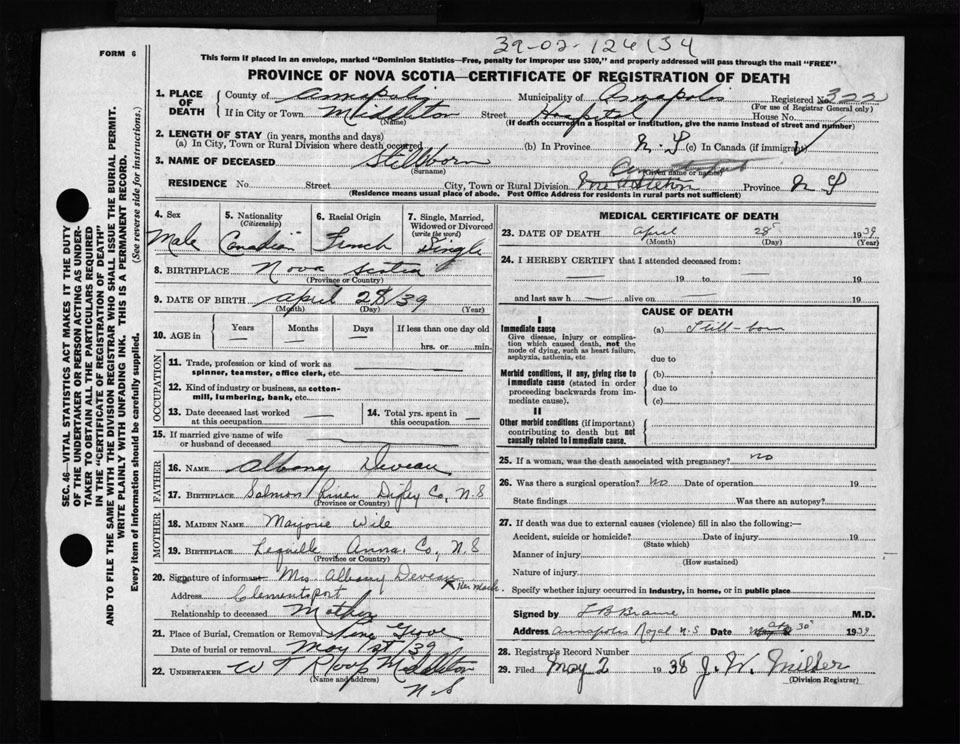 39-02-126134
FORM 6
This form if placed in an envelope, marked "Dominion Statistics—Free, penalty for improper use $300," and properly addressed will pass through the mail "FREE"
PROVINCE OF NOVA SCOTIA—CERTIFICATE OF REGISTRATION OF DEATH
1. PLACE OF DEATH
County of Annapolis Municipality of Annapolis Registered No. 322
(For use of Registrar General only)
If in City or Town Middleton Street Hospital House No.
(Name) (If death occurred in a hospital or institution, give the name instead of street and number)
2. LENGTH OF STAY (in years, months and days)
(a) In City, Town or Rural Division where death occurred (b) In Province N.S (c) In Canada (if immigrant)
3. NAME OF DECEASED Stillborn
(Surname) (Given name or names)
RESIDENCE No. Street City, Town or Rural Division Middleton Province N S
(Residence means usual place of abode. Post Office Address for residents in rural parts not sufficient)
4. Sex
Male
5. Nationality
(Citizenship)
Canadian
6. Racial Origin
French
7. Single, Married, Widowed or Divorced
(write the word)
Single
8. BIRTHPLACE Nova Scotia
(Province or Country)
9. DATE OF BIRTH April 28/39
(Month) (Day) (Year)
10. AGE in Years Months Days If less than one day old
— — — hrs. or min.
OCCUPATION
11. Trade, profession or kind of work as spinner, teamster, office clerk, etc.
12. Kind of industry or business, as cotton-mill, lumbering, bank, etc.
13. Date deceased last worked at this occupation —
14. Total yrs. spent in this occupation. —
15. If married give name of wife or husband of deceased
FATHER
16. NAME Albany Deveau
17. BIRTHPLACE Salmon River Digby Co, N.S
MOTHER
18. MAIDEN NAME Marjorie Wile
19. BIRTHPLACE Lequille Anna. Co, N.S
(Province or Country)
20. Signature of informant Mrs Albany Deveau X Her Mark
Address Clementsport
Relationship to deceased Mother
21. Place of Burial, Cremation or Removal Pine Grove
Date of burial or removal May 1st/39
22. UNDERTAKER W T Roop Middleton
(Name and address)
N.S
MEDICAL CERTIFICATE OF DEATH
23. DATE OF DEATH April 28 1939
(Month) (Day) (Year)
24. I HEREBY CERTIFY that I attended deceased from:
— 19 to — 19
and last saw h — alive on — 19
CAUSE OF DEATH
I
Immediate cause (a) Still-born
Give disease, injury or complication which caused death, not the mode of dying, such as heart failure, asphyxia, asthenia, etc
due to
Morbid conditions, if any, giving rise to immediate cause (stated in order proceeding backwards from immediate cause).
(b)
due to
(c)
II
Other morbid conditions (if important) contributing to death but not causally related to immediate cause.
25. If a woman, was the death associated with pregnancy? no
26. Was there a surgical operation? no Date of operation 19
State findings Was there an autopsy?
27. If death was due to external causes (violence) fill in also the following:—
Accident, suicide or homicide? Date of injury 19
(State which)
Manner of injury
(How sustained)
Nature of injury
Specify whether injury occurred in industry, in home, or in public place
Signed by L B Braine M.D.
Address Annapolis Royal N.S Date Ap 30 1939
28. Registrar's Record Number
29. Filed May 2 1938 J. W. Milder
(Division Registrar)
SEC. 46—VITAL STATISTICS ACT MAKES IT THE DUTY
OF THE UNDERTAKER OR PERSON ACTING AS UNDER-
TAKER TO OBTAIN ALL THE PARTICULARS REQUIRED
IN THE "CERTIFICATE OF REGISTRATION OF DEATH"
AND TO FILE THE SAME WITH THE DIVISION REGISTRAR WHO SHALL ISSUE THE BURIAL PERMIT.
WRITE PLAINLY WITH UNFADING INK. THIS IS A PERMANENT RECORD.
Every item of information should be carefully supplied. (See reverse side for instructions.)